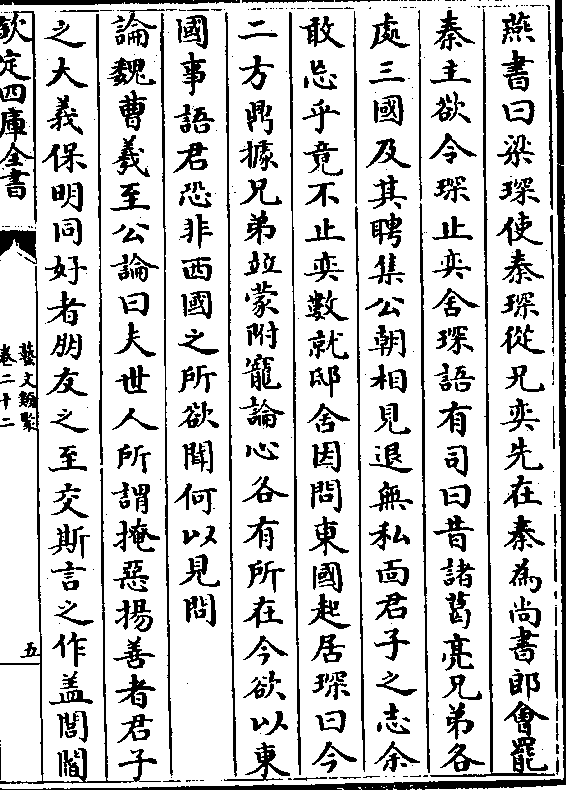 燕書曰梁琛使秦琛從兄奕先在秦為尚書郎會罷
秦主欲令琛止奕舍琛語有司曰昔諸葛亮兄弟各
處三國及其聘集公朝相見退無私面君子之志余
敢忘乎竟不止奕數就邸舍因問東國起居琛曰今
二方鼎據兄弟竝蒙附寵論心各有所在今欲以東
國事語君恐非西國之所欲聞何以見問
論魏曹羲至公論曰夫世人所謂掩惡揚善者君子
之大義保明同好者朋友之至交斯言之作盖閭閻
欽定四庫全書
藝文類聚
卷二十二
五